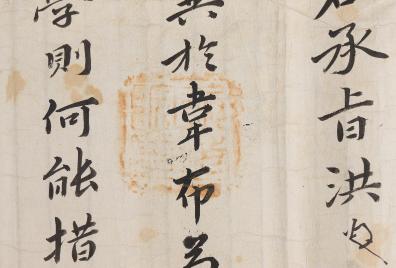 承旨洪
於韋布為
學則何能措